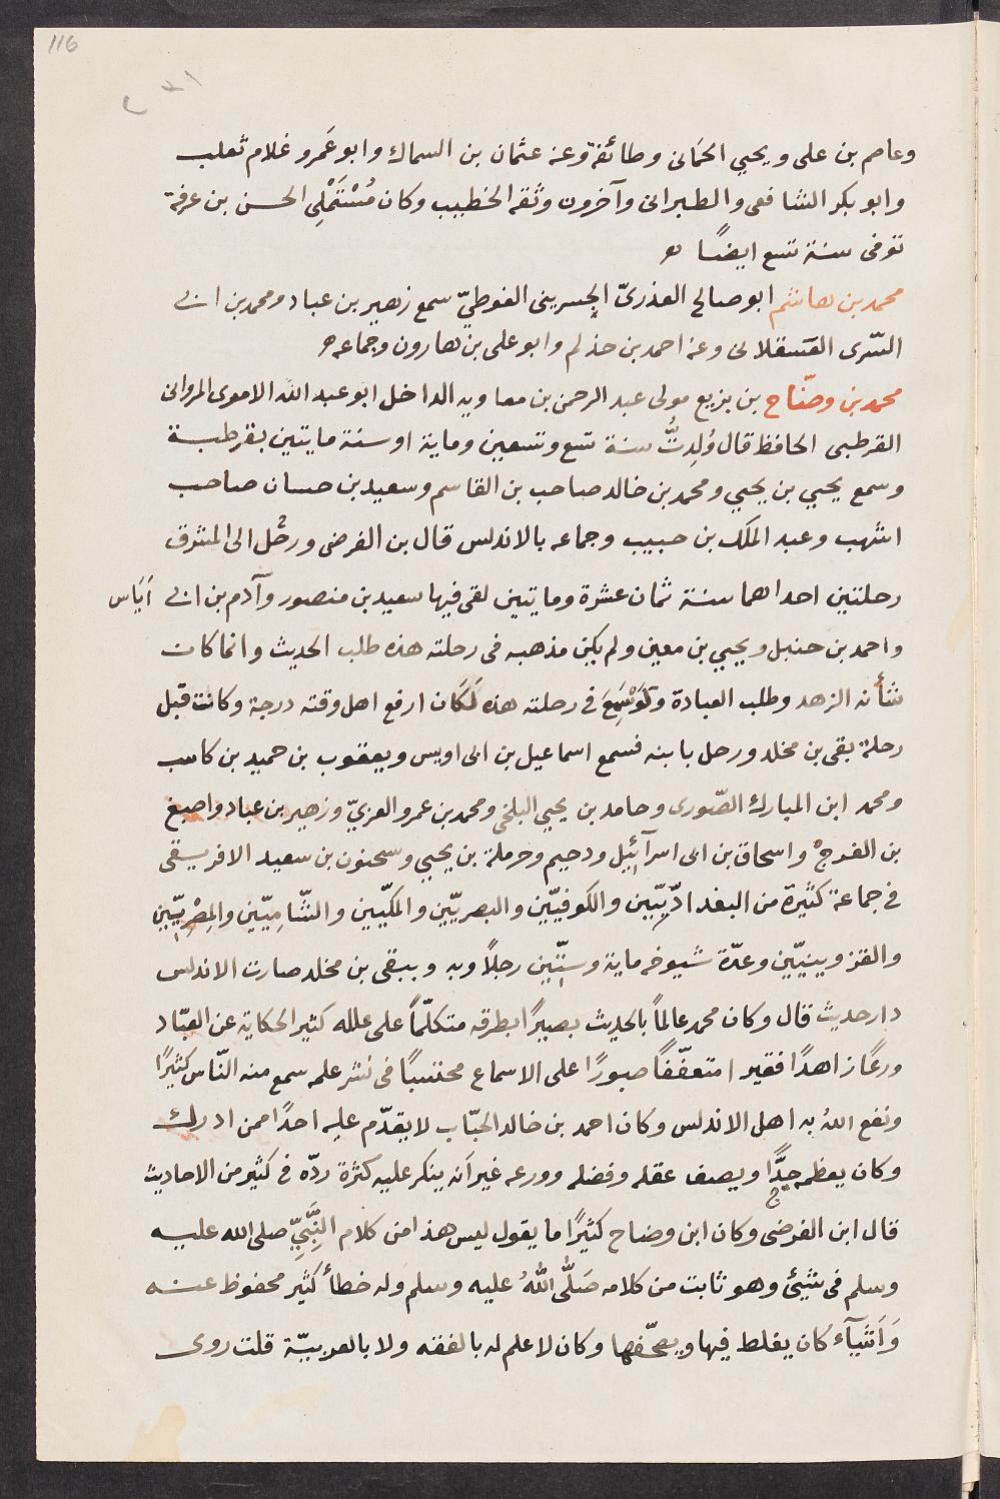 116
وعاصم بن على ويحيي الحمَانى وطائفة وعنه عثمان بن السماك وابو عَمرو غلام ثعلب
وابو بكر الشافعى والطبرانى وآخرون وثقه الخطيب وكان مُسْتَمْلِى الحسن بن عرفة
توفى سنة تسع ايضًا
محمد بن هاشم ابو صالح العذرىّ الجِسرينى الغوطيّ سمع زهير بن عباد ومحمد بن ابى
السّرى العَسقلانى وعنه احمد بن حذلم وابو على بن هارون وجماعه
محمد بن وضّاح بن بزيع مولى عبد الرحمن بن معاويه الداخل ابو عبد الله الاموى المروانى
القرطبى الحافظ قال وُلِدتُّ سنة تسع وتسعين وماية او سنة مايتين بقرطبة
وسمع يحيي بن يحيي ومحمد بن خالد صاحب بن القاسم وسعيد بن حسان صاحب
اشهب وعبد الملَك بن حبيب وجماعه بالاندلس قال بن الفرضى ورحُل الى المشرق
رحلتين احداهما سنة ثمان عشرة ومايتين لقى فيها سعيد بن منصور وآدم بن ابى اَيَاس
واحمد بن حنبل ويحيي بن معين ولم يكن مذهبه فى رحلته هذه طلب الحديث وانما كان
شأنه الزهد وطلب العبادة ولَوْسَمِعَ فى رحلته هذه لَكَان ارفع اهل وقته درجة وكانت قبل
رحلة بقى بن مخلد ورحل بابنه فسمع اسماعيل بن ابى اويس ويعقوب بن حميد بن كاسب
ومحمد ابن المبارك الصّورى وحامد بن يحيي البلخى ومحمد بن عمرو العزيّ وزهير بن عباد واصبغ
بن الفرج واسحاق بن ابى اسرآئيل ودحيم وحرملة بن يحيي وسحنون بن سعيد الافريقى
فى جماعة كثيرة من البغدادّيّين والكوفيّين والبصريّين والمكيّين والشّامِيّين والمِصْريّين
والقزوينيّين وعدّة شيوخه ماية وستّين رجلاً وبه وببقى بن مخلد صارت الاندلس
دار حديث قال وكان محمد عالماً بالحديث بصيرًا بطرقه متكلّماً على علله كثير الحكاية عن العبّاد
ورعًا زاهدًا فقيرا متعفّفًا صبورًا على الاسماع محتسبًا فى نشر علمه سمع منه النّاس كثيرًا
ونفع اللهُ به اهل الاندلس وكان احمد بن خالد الحبّاب لا يقدّم عليه احدًا ممن ادرك
وكان يعظمه جِدًّا ويصف عقله وفضله وورعه غير اَنه ينكر عليه كثرة ردّه فى كثير من الاحاديث
قال ابن الفرضى وكان ابن وضاح كثيرًا ما يقول ليس هذا من كلام النَّبِيّ صلى الله عليه
وسلم فى شيئ وهو ثابت من كلامه صَلَّى اللهُ عليه وسلم وله خطأ كثير محفوظ عنه
وَاَشيآء كان يغلط فيها ويصحّفها وكان لا علم له بالفقه ولا بالعربيّة قلت روى